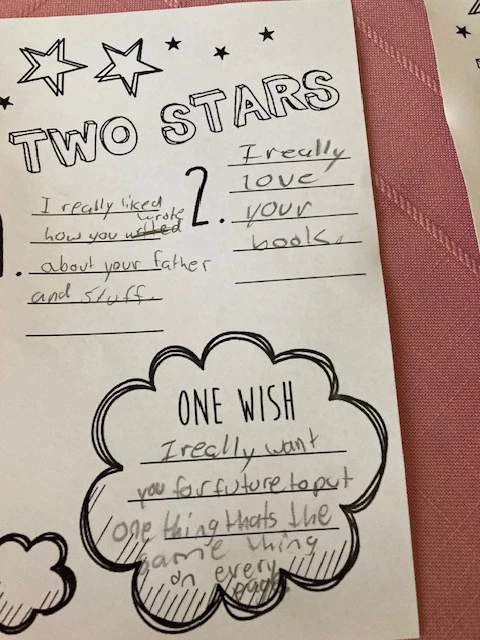 TWO STARS
1.
I really liked
wrote
how you writed
about your father
and stuff.
2.
I really
love
your
book.
ONE WISH
I really want
you for future to put
one thing thats the
same thing
on every
page.